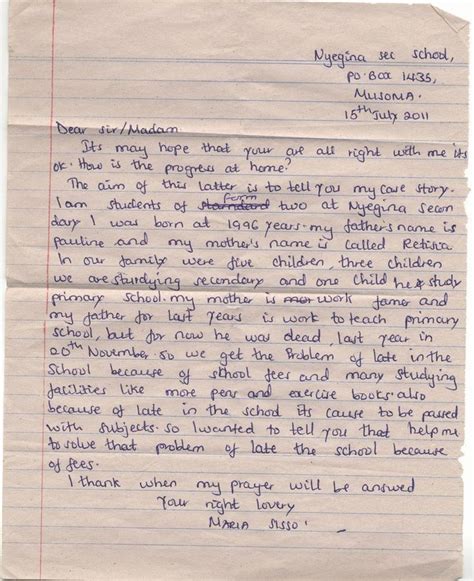 Nyegina sec school,
P.O. Box 1435,
MUSOMA.
15th July 2011
Dear Sir/Madam
Its may hope that your are all right with me its
ok. How is the progress at home?
The aim of this latter is to tell you my care story.
I am students of starndard form two at Nyegina secon
dary I was born at 1996 years. my father's name is
pauline and my mother's name is called Retisia
In our family were five children, three children
we are sturdying secondary and one child he study
primary school. my mother is work famer and
my father for last years is work to teach primary
school, but for now he was dead, last year in
20th November. so we get the Problem of late in the
School because of school fees and many studying
facilities like more pens and exercise books. also
because of late in the school its cause to be passed
with subjects. so I wanted to tell you that help me
to solve that problem of late the school because
of fees.
I thank when my prayer will be answed
Your right lovery
MARIA SISSO